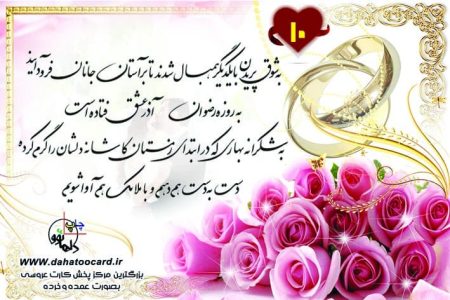 ۱۰
به شوق پریدن با یکدیگر همبال شدند تا بر آستان جانان فرود آیند
به روزه رضوان آذر عشق فتاده است
به شکرانه بهاری که در ابتدای زمستان کاشانه دلشان را گرم کرده
دست به دست هم دهیم و با ملائک هم آوا شویم
چاپ
www.dahatoocard.ir
بزرگترین مرکز پخش کارت عروسی
بصورت عمده و خرده